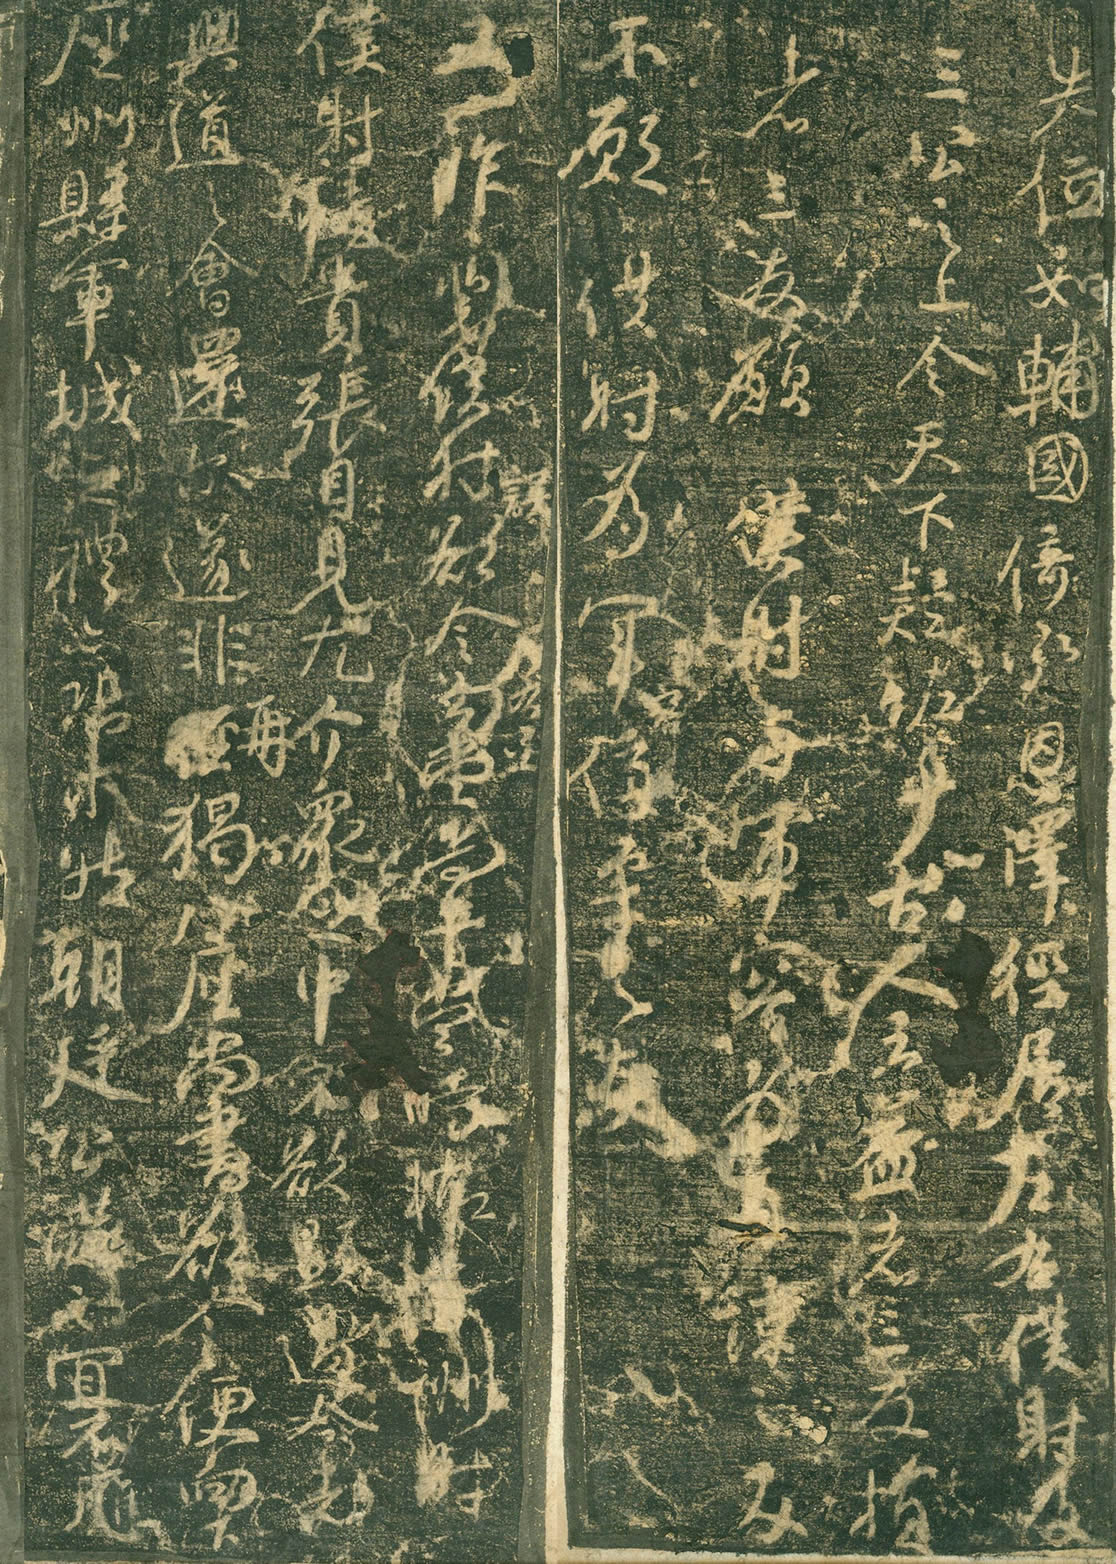 失位如輔國倚承恩澤徑居左右僕射及
三公之上令天下疑怪乎古人云益者三友損
者三友願僕射與軍容為直諒之友
不願僕射為軍容佞柔之友
又一昨裴僕射誤欲令左右丞勾當尚書當時
僕射恃貴張目見尤介衆之中不欲顯過今者
興道之會還爾遂非再猲八座尚書欲令便向下
座州縣軍城之禮亦恐未然朝廷公讌之宜不應